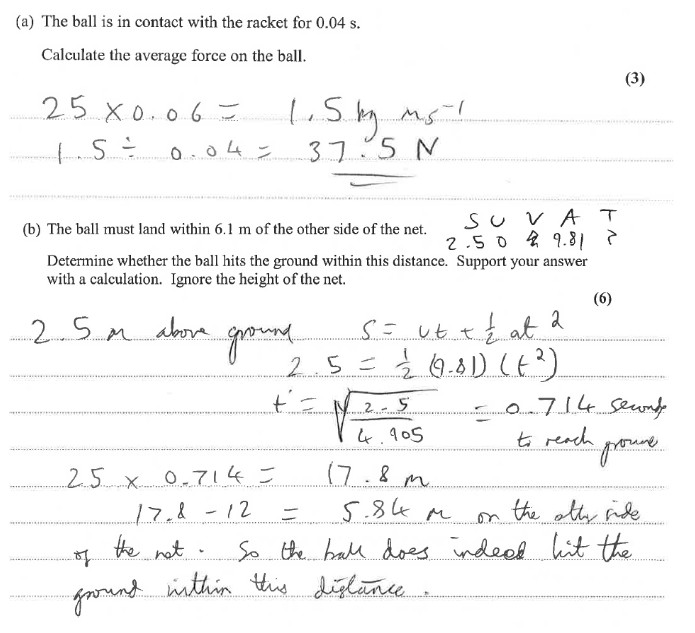 (a) The ball is in contact with the racket for 0.04 s.
Calculate the average force on the ball.
(3)
25 × 0.06 = 1.5 kg ms⁻¹
1.5 ÷ 0.04 = 37.5 N
(b) The ball must land within 6.1 m of the other side of the net.
S U V A T
2.5 0 9.81 ?
Determine whether the ball hits the ground within this distance. Support your answer
with a calculation. Ignore the height of the net.
(6)
2.5 m above ground S = ut + ½ at²
2.5 = ½ (9.81) (t²)
t = √(2.5/4.905) = 0.714 seconds
to reach ground
25 × 0.714 = 17.8 m
17.8 - 12 = 5.84 m on the other side
of the net. So the ball does indeed hit the
ground within this distance.